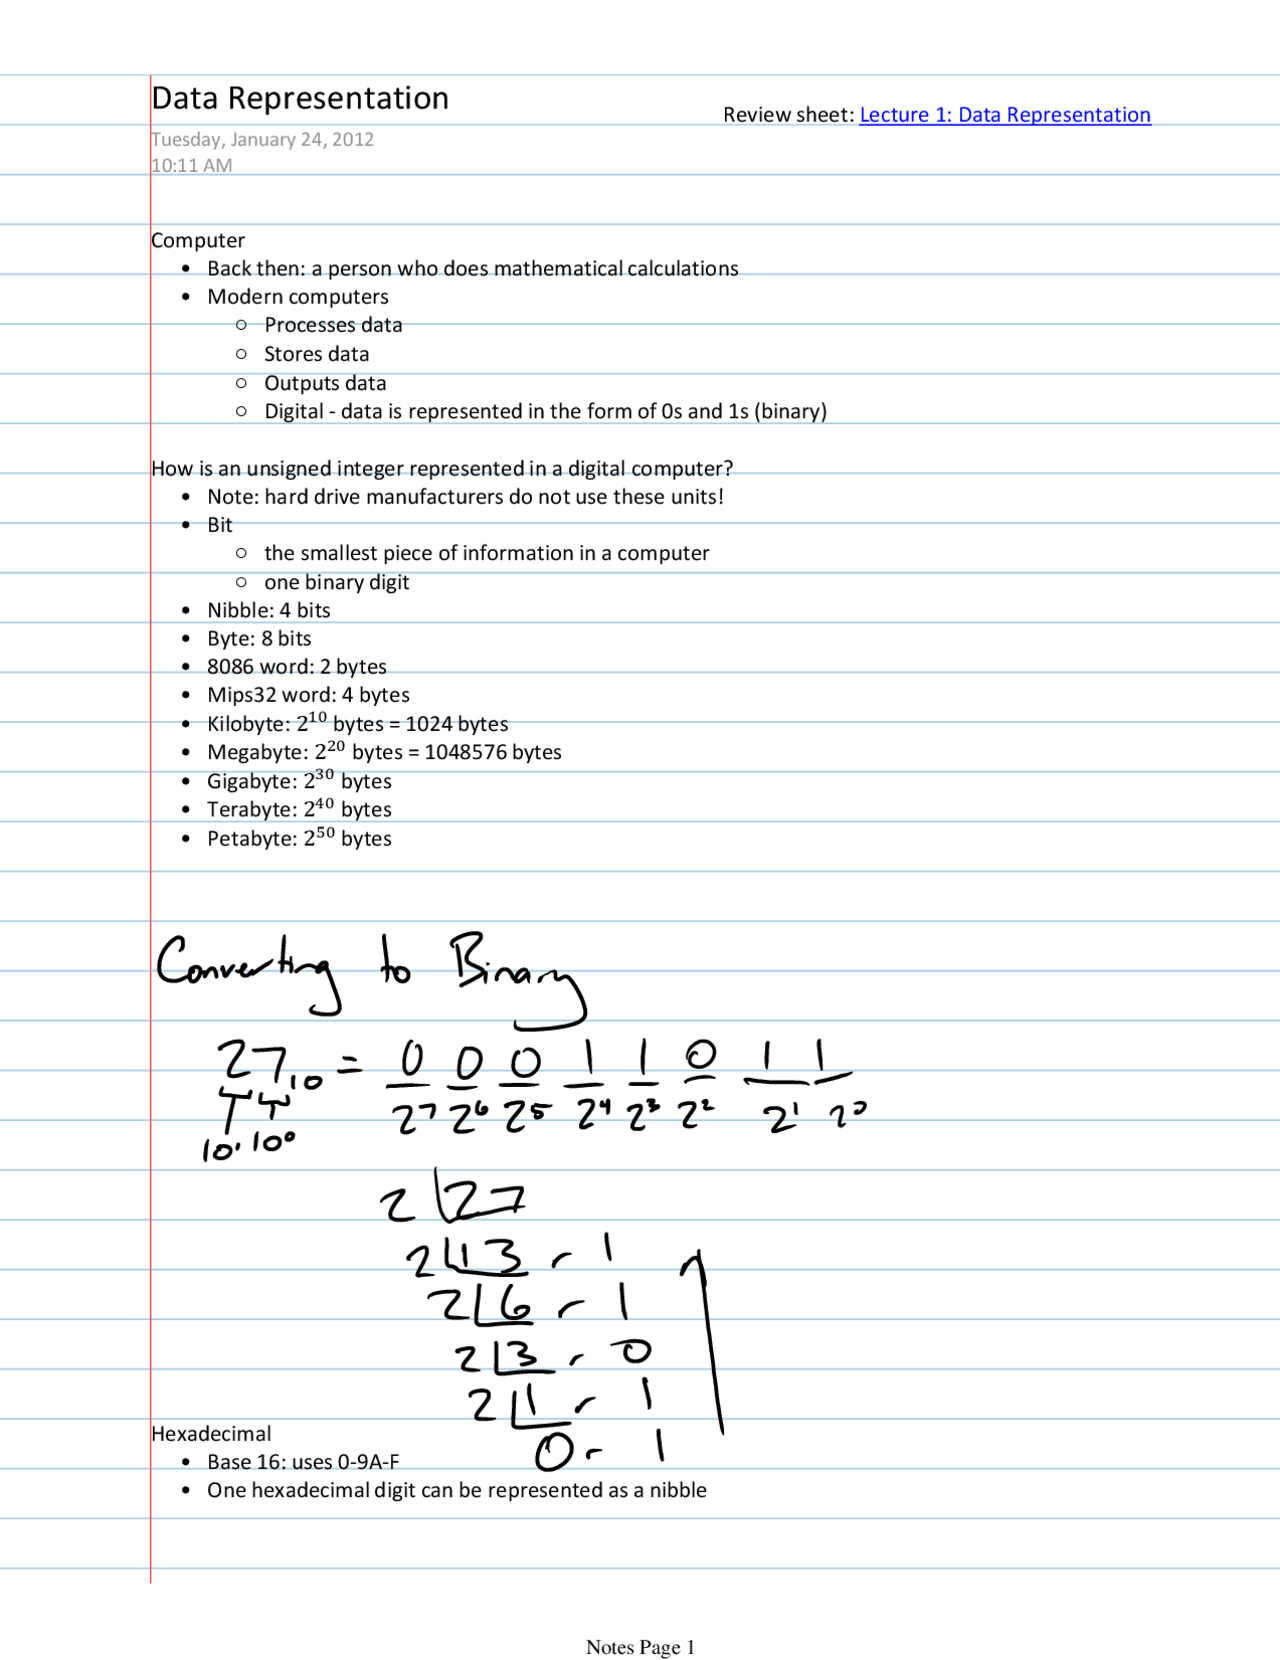 Data Representation
Review sheet: Lecture 1: Data Representation
Tuesday, January 24, 2012
10:11 AM
Computer
• Back then: a person who does mathematical calculations
• Modern computers
○ Processes data
○ Stores data
○ Outputs data
○ Digital - data is represented in the form of 0s and 1s (binary)
How is an unsigned integer represented in a digital computer?
• Note: hard drive manufacturers do not use these units!
• Bit
○ the smallest piece of information in a computer
○ one binary digit
• Nibble: 4 bits
• Byte: 8 bits
• 8086 word: 2 bytes
• Mips32 word: 4 bytes
• Kilobyte: 2¹⁰ bytes = 1024 bytes
• Megabyte: 2²⁰ bytes = 1048576 bytes
• Gigabyte: 2³⁰ bytes
• Terabyte: 2⁴⁰ bytes
• Petabyte: 2⁵⁰ bytes
Converting to Binary
27₁₀ = 0 0 0 1 1 0 1 1
2⁷ 2⁶ 2⁵ 2⁴ 2³ 2² 2¹ 2⁰
10¹ 10⁰
2 27
2 13 r 1
2 6 r 1
2 3 r 0
2 1 r 1
0 r 1
Hexadecimal
• Base 16: uses 0-9A-F
• One hexadecimal digit can be represented as a nibble
Notes Page 1